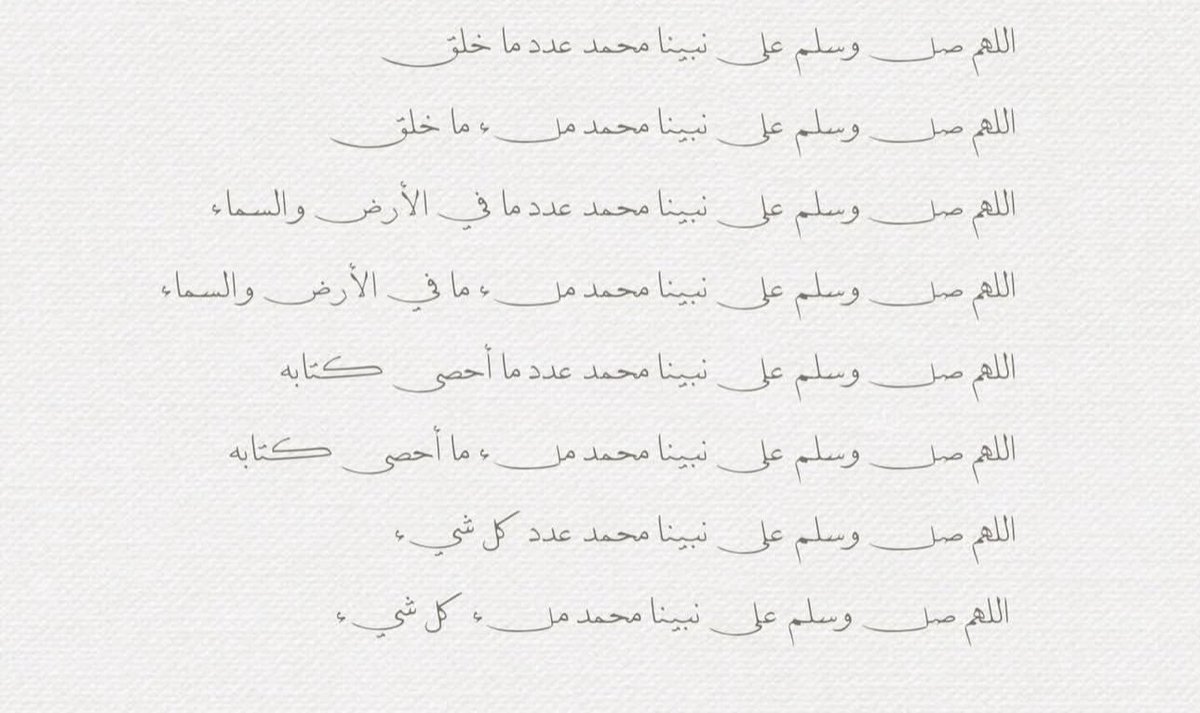 اللهم صل وسلم على نبينا محمد عدد ما خلق
اللهم صل وسلم على نبينا محمد ملء ما خلق
اللهم صل وسلم على نبينا محمد عدد ما في الأرض والسماء
اللهم صل وسلم على نبينا محمد ملء ما في الأرض والسماء
اللهم صل وسلم على نبينا محمد عدد ما أحصى كتابه
اللهم صل وسلم على نبينا محمد ملء ما أحصى كتابه
اللهم صل وسلم على نبينا محمد عدد كل شيء
اللهم صل وسلم على نبينا محمد ملء كل شيء